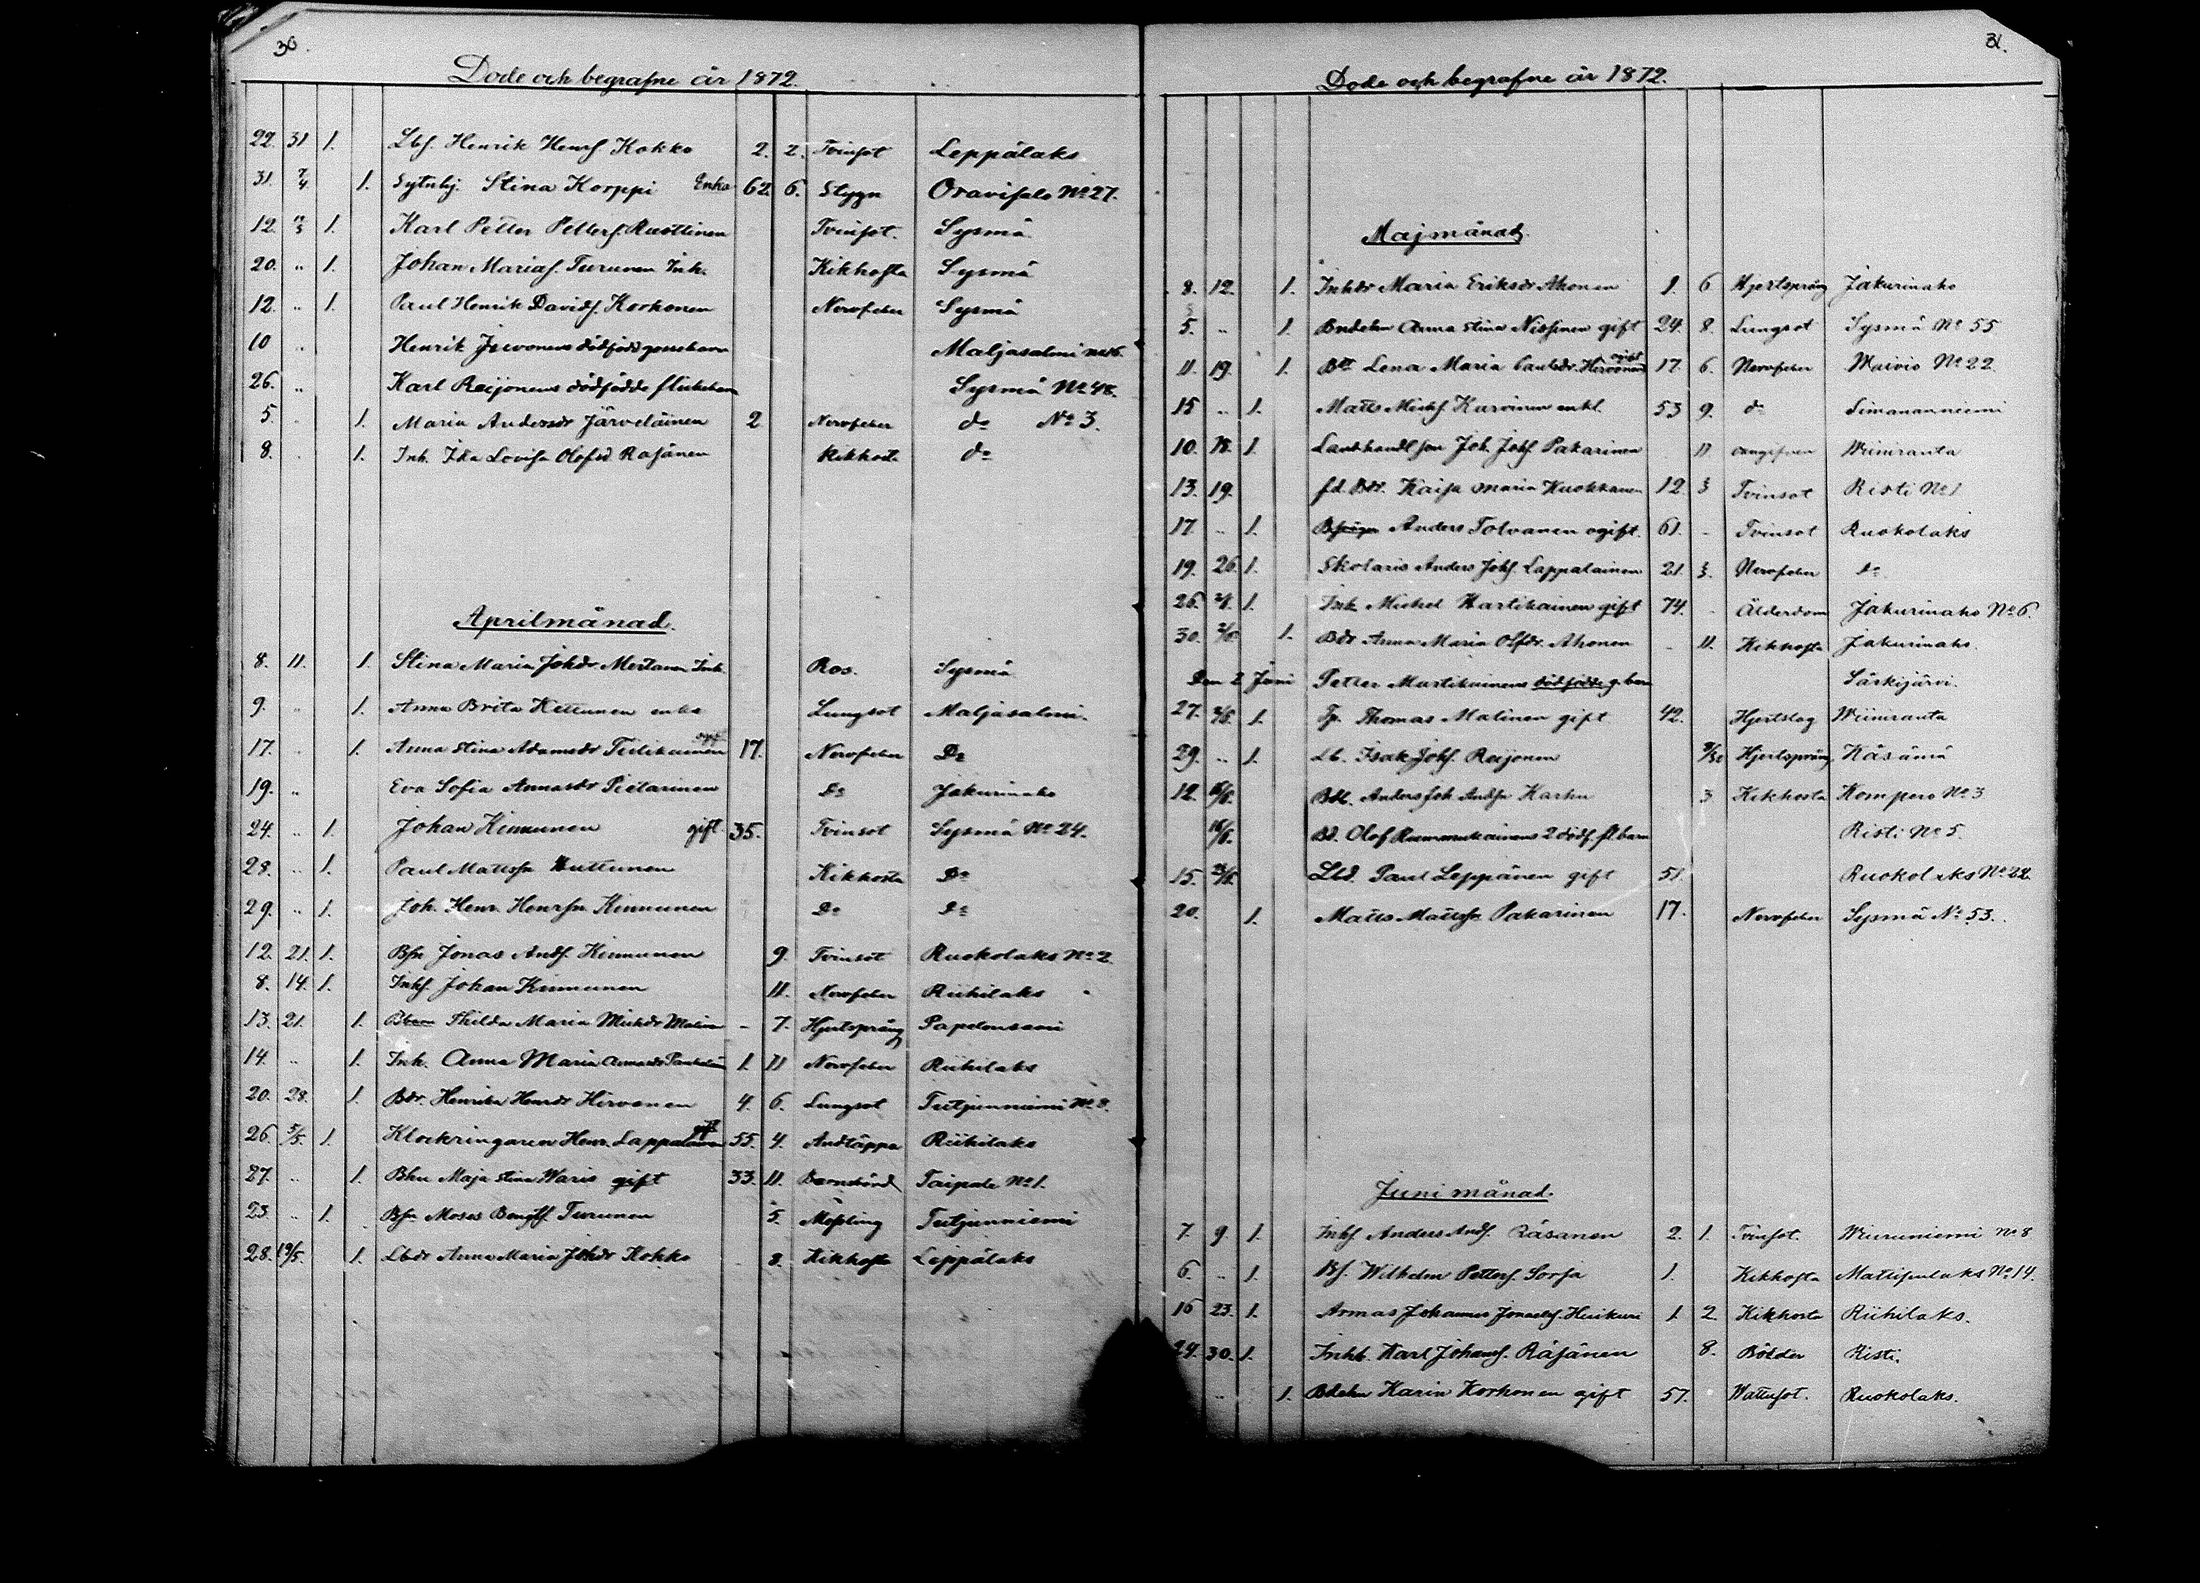 30.
Döde och begrafne år 1872.
22. 31 1. Lbs. Henrik Henrs Kokko 2. 2. Tvinsot Leppälaks
31. 7/4 1. Sytnhj. Stina Korppi Enka 62. 6. Stygn Oravisalo No 27.
12. 1. Karl Petter Petters. Tvinsot. Sysmä
20. .. 1. Johan Marias. Turunen Inh. Kikhosta Sysmä
12. .. 1. Paul Henrik Davids. Korhonen Nervfeber Sysmä
10 .. Henrik dödfödt gossebarn Maljasalmi
26. .. Karl Reijonens dödfödde flickebarn Sysmä No 48.
5. . 1. Maria Andersdr Järveläinen 2 Nervfeber do No 3.
8. . 1. Inh. Ida Lovisa Olofsd. Räsänen Kikhosta do
Aprilmånad.
8. 11. 1. Stina Maria Johdr Mertanen Inh. Ros. Sysmä
9. .. 1. Anna Brita Kettunen enka Lungsot Maljasalmi.
17. .. 1. Anna Stina Adamsdr Tiilikainen ogift 17. Nervfeber Do
19. .. Eva Sofia Annasdr Pietarinen Do Jakurinaho
24. .. 1. Johan Kinnunen gift 35. Tvinsot Sysmä No 24.
28. .. 1. Paul Mattssn Huttunen Kikhosta Do
29. .. 1. Joh. Henr. Henrsn Kinnunen Do Do
12. 21. 1. Bsn Jonas Ands. Kinnunen 9. Tvinsot Ruokolaks No 2
8. 14. 1. Inhs. Johan Kinnunen 11. Nervfeber Riihilaks
13. 21. 1. Bbarn Thilda Maria Michdr Malinen - 7. Hjertsprång
14. .. 1. Inh. Anna Maria Annasdr 1. 11 Nervfeber Riihilaks
20. 28. 1. Bdr. Henrika Henrdr Hirvonen 4. 6. Lungsot Tutjunniemi No 8.
26. 5/5 1. Klockringaren Henr. Lappalainen gift 55. 4. Andtäppa Riihilaks
27. .. 1. Bhu Maja Stina Waris gift 33. 11. Barnsbörd Taipale No 1.
23. .. 1. Bsn Moses Bengts. Turunen 5. Messling Tutjunniemi
28. 19/5. 1. Lbdr Anna Maria Johdr Kokko . 8. Kikhosta Leppälaks
31.
Döde och begrafne år 1872.
Majmånad.
8. 12. 1. Inhdr Maria Eriksdr Ahonen 1. 6 Hjertsprång Jakurinaho
5. .. 1. Bndehu Anna Stina Nissinen gift 24. 8. Lungsot Sysmä No 55
11. 19. 1. Bdr Lena Maria Paulsdr Hirvonen ogift 17. 6. Nervfeber Maivio No 22
15 .. 1. Matts Michs Karvinen enkl. 53 9. do Simananniemi
10. 1. Landthandl. son Joh. Johs Pakarinen 11 oangifven Wiiniranta
13. 19. fd. Bdr. Kaisa Maria Kuokkanen 12 3 Tvinsot Risti No 1
17 .. 1. Anders Tolvanen ogift. 61. - Tvinsot Ruokolaks
19. 26. 1. Skolaris Anders Johs. Lappalainen 21. 3. Nervfeber do
26. 2/6. 1. Inh. Michel Hartikainen gift 74. - Ålderdom Jakurinaho No 6.
30. 2/6. 1. Bdr Anna Maria Olsdr. Ahonen - 11. Kikhosta Jakurinaho.
Den 2 Juni Petter Martikainens dödfödde g. barn Särkijärvi.
27. 1. Tp. Thomas Malinen gift 42. Hjertslag Wiiniranta
29. .. 1. Lb. Isak Johs. Reijonen 3/30 Hjertsprång Käsämä
12. 16/6. Bdb. Anders Joh. Andsn Karhu 3 Kikhosta Kompero No 3
16/6. Bd. Olof 2 dödf. fl barn Risti No 5.
15. Lbd. Paul Leppänen gift 51. Ruokolaks No 22.
20. 1. Matts Mattssn Pakarinen 17. Nervfeber Sysmä No 53.
Juni månad.
7. 9. 1. Inhs Anders Ands. Räsänen 2. 1. Tvinsot. Wiiruniemi No 8
6. .. 1. Bs. Wilhelm Petters. Sorsa 1. Kikhosta Mattisenlaks No 14.
16 23. 1. Armas Johannes Heiskuri 1. 2. Kikhosta Riihilaks.
24. 30. 1. Inhb. Karl Johans. Räsänen 8. Bölder Risti.
.. 1. Bdehu Karin Korhonen gift 57. Wattusot. Ruokolaks.